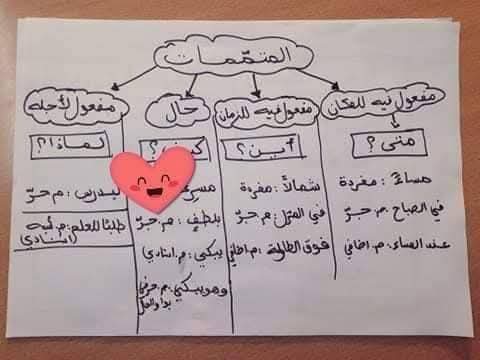 المتمّمات
مفعول فيه للمكان
متى؟
مساءً: مفردة
في الصباح: م. جرّ
عند المساء: م. اضافي
مفعول فيه للزمان
أين؟
شمالاً: مفردة
في المنزل: م جرّ
فوق الطاولة: م اضافي
حال
كيف؟
بلطفٍ: م. جرّ
يبكي: م. اسنادي)
وهو يبكي: م. حرفي
بواو الحال
مفعول لأجله
لماذا؟
ليدرس: م جرّ
طلبًا للعلم: م. شبه
اسنادي)